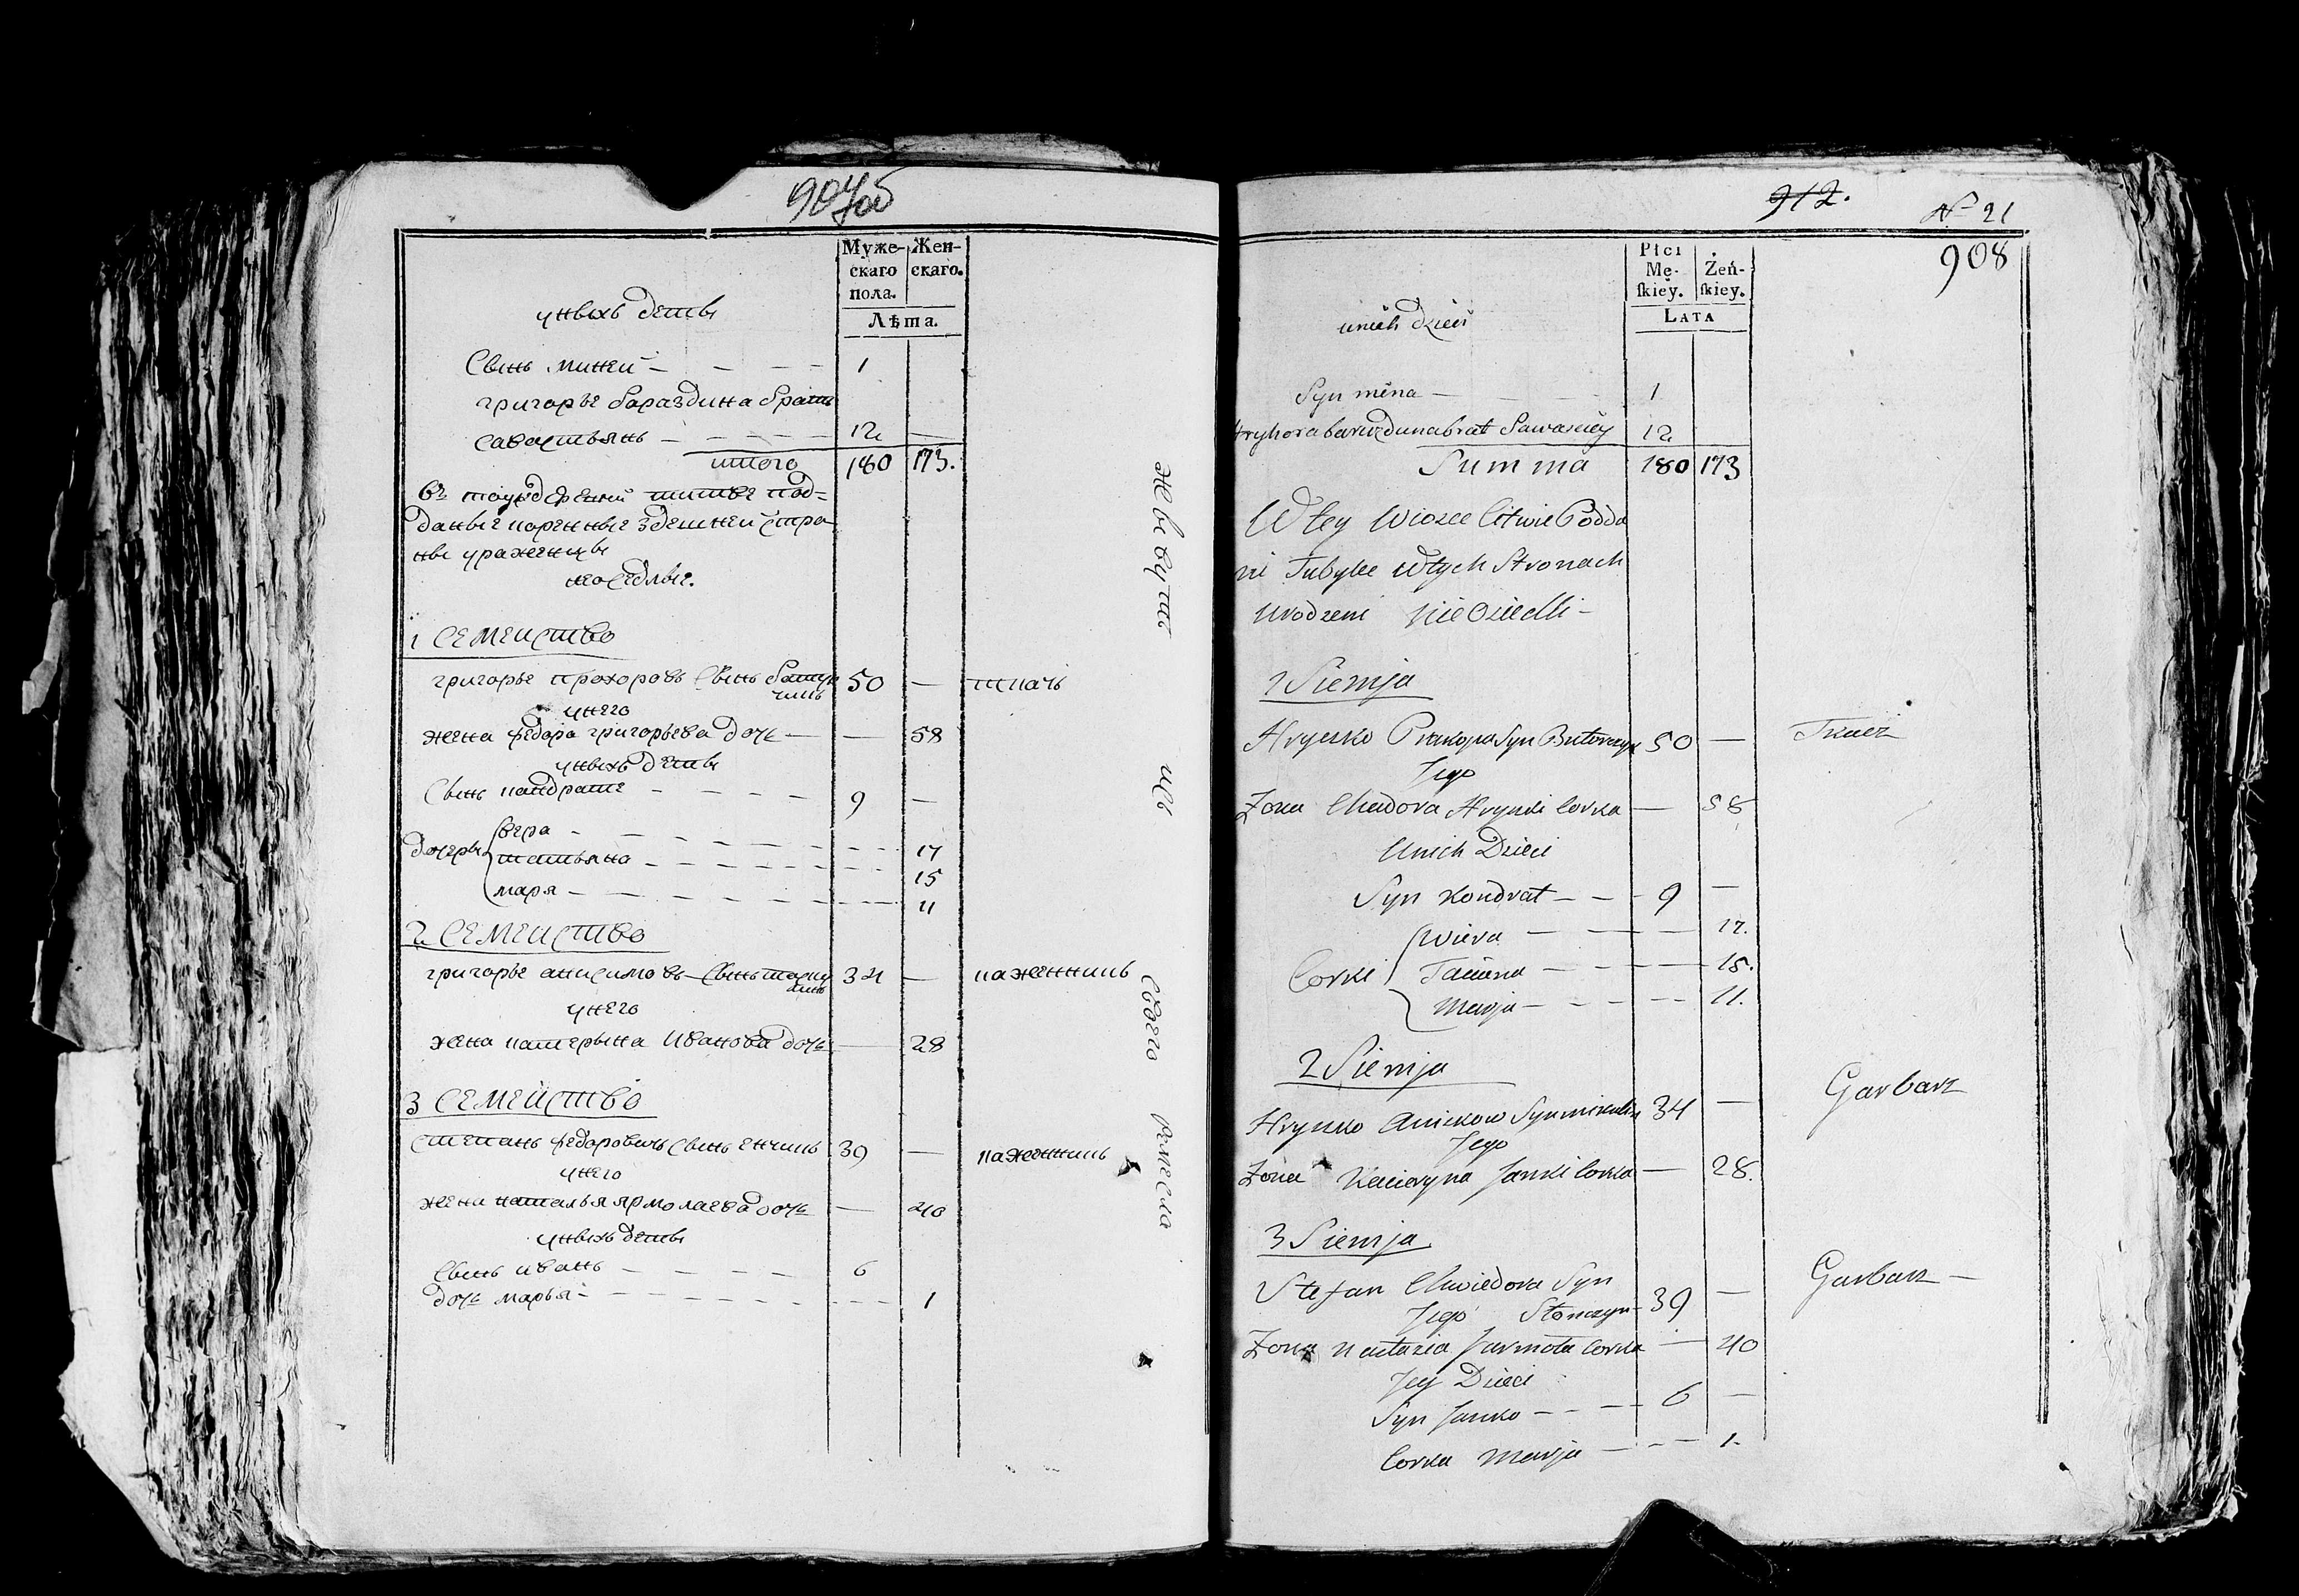 907об
Муже-
скаго
пола.
Жен-
скаго.
Лѣта.
уныхъ деты
Сынь миней — 1
григорье бараздина брать
савостьянь — 12 —
итого 180 173.
въ тоуже
даные коренные здешней стра
ны ураженцы
неоседлые.
1 Семейство
григорье прохоровь Сынь
50 — ткачь
унего
жена федора григорьева дочь — — 58
уныхъ деты
Сынь кандрате 9 —
дочеры
вера 17
татьяна 15
маря 11
2 Семейство
григорье анисимовь Сынь
34 — кажевникь
унего
жена катерына Иванова дочь — 28
3 Семейство
степань федоровичь Сынь
39 — кажевникь
унего
жена наталья ярмолаева дочь — 40
уныхъ деты
Сынь ивань 6
дочь марья 1
живуть
изь
своего
ремесла
912.
N 21
908
Płci
Mę-
skiey.
Żeń-
skiey.
LATA
unich dzieci
Syn mina — 1
brat 12
Summa 180 173
W tey Wiosce Litwie Podda
ni Tubylce w tych Stronach
Urodzeni nie Osiedli —
1 Siemja
Hrynko Prakopa Syn 50 — Tkacz
Jego
Żona Chwadora Hrynki Corka — 58
Unich Dzieci
Syn Kondrat — 9 —
Corki
Wiera — 17.
Taciana — 15.
Marja — 11.
2 Siemja
Hrynko Syn 34 — Garbarz
Jego
Żona Kacieryna Janki Corka — 28.
3 Siemja
Stefan Chwiedora Syn
Jego 39 — Garbarz —
Żona Nastazia Jarmoła Corka — 40
Jey Dzieci
Syn Janko — 6 —
Corka Marja — 1.